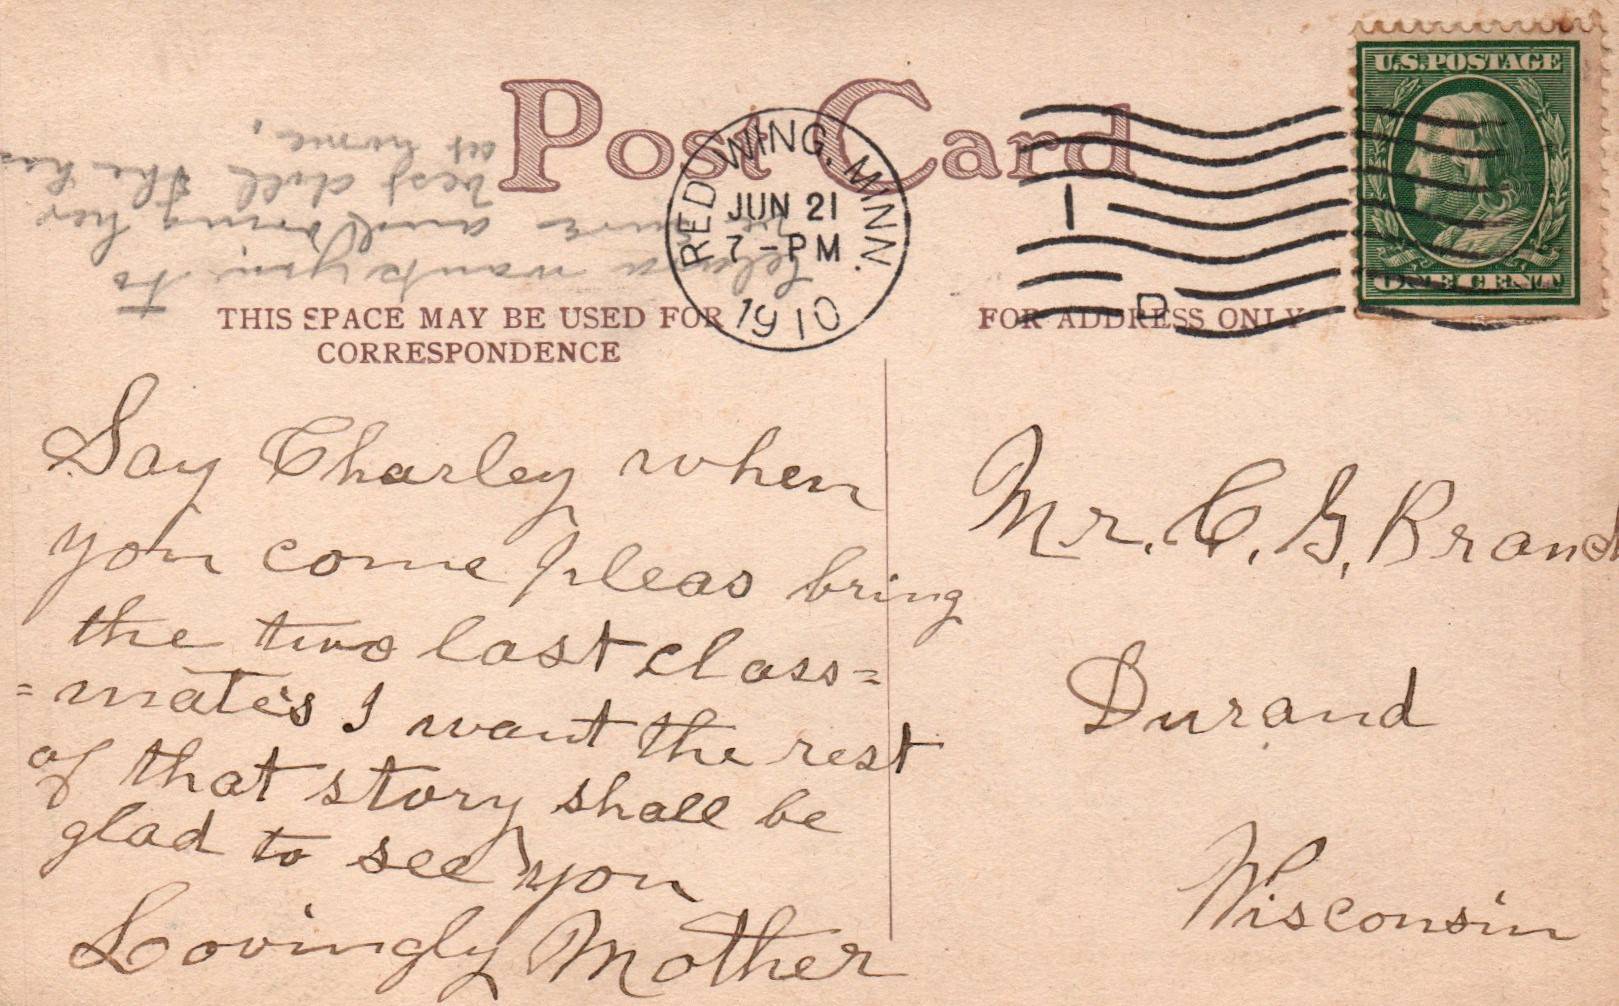 Post Card
RED WING, MINN.
JUN 21
7-PM
1910
1
D
U.S. POSTAGE
ONE CENT
THIS SPACE MAY BE USED FOR
CORRESPONDENCE
FOR ADDRESS ONLY
Say Charley when
you come pleas bring
the two last class=
=mates I want the rest
of that story shall be
glad to see you
Lovingly Mother
Mr. C. G. Brand
Durand
Wisconsin
wants you to
sure and bring her
best doll She has
at home,